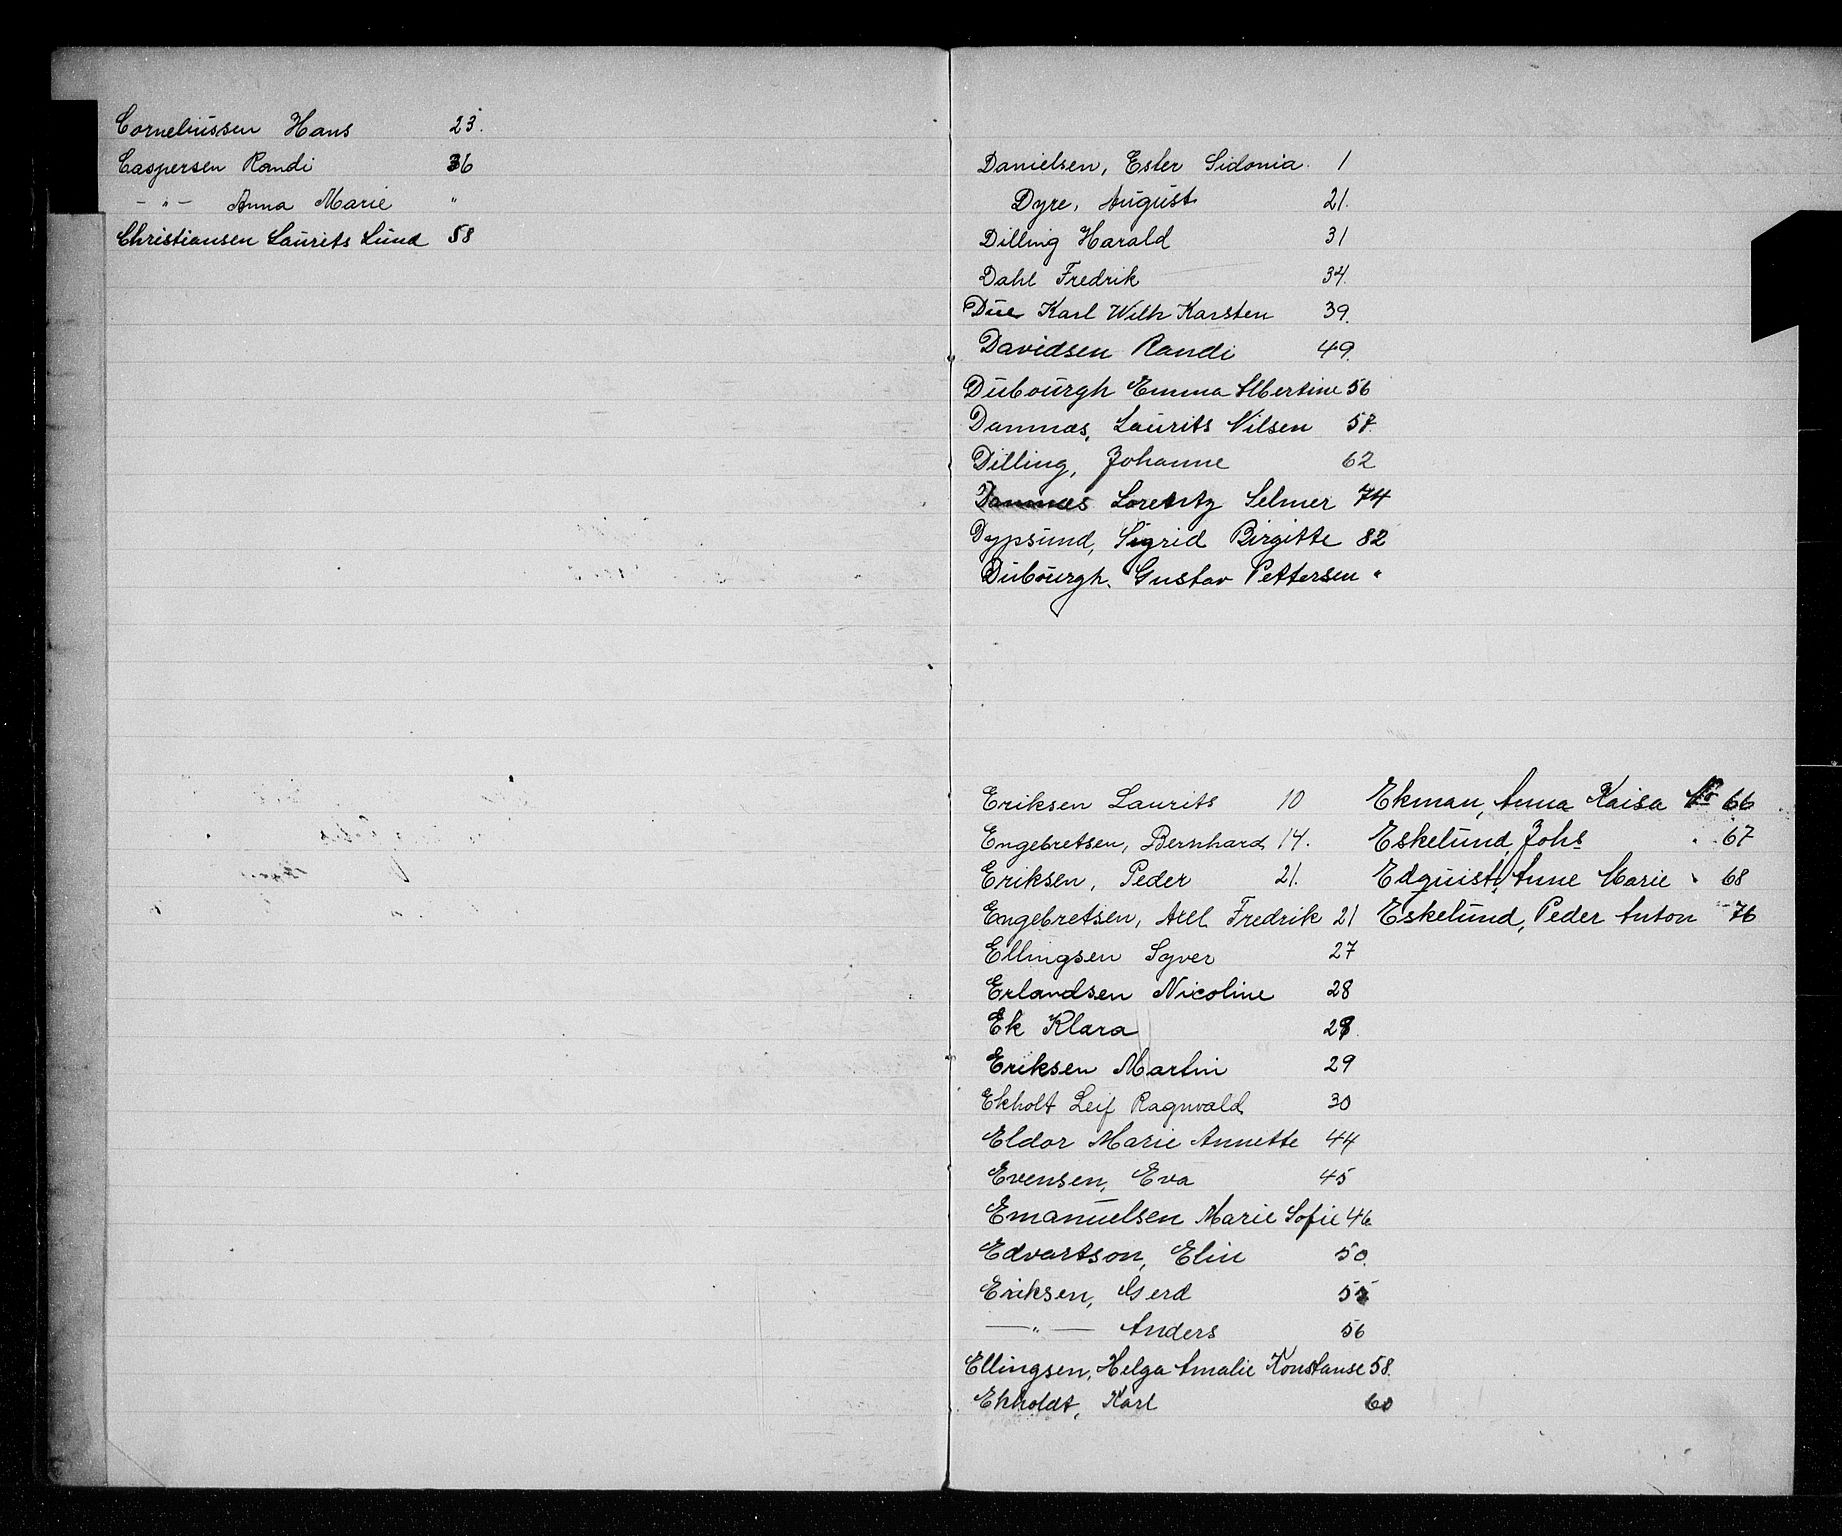 Corneliussen Hans 23.
Caspersen Randi 36
- " - Anna Marie "
Christiansen Laurits Lund 58
Danielsen, Ester Sidonia. 1
Dyre, August 21.
Dilling Harald 31
Dahl Fredrik 34.
Due Karl Wilh Karsten 39.
Davidsen Randi 49.
Dubourgh Emma Albertine 56
Damnæs, Laurits Nilsen 57.
Dilling, Johanne 62
Damnæs Lorentz Selmer 74
Dypsund, Sigrid Birgitte 82
Dubourgh. Gustav Pettersen "
Eriksen Laurits 10
Engebretsen, Bernhard 14.
Eriksen, Peder 21.
Engebretsen, Axel Fredrik 21
Ellingsen Syver 27
Erlandsen Nicoline 28
Ek Klara 28.
Eriksen Martin 29
Ekholt Leif Ragnvald 30
Eldor Marie Annette 44
Evensen, Eva 45
Emanuelsen Marie Sofie 46
Edvartson, Elin 50.
Eriksen, Gerd 55
- " - Anders 56
Ellingsen, Helga Amalie Konstanse 58.
Ekholdt, Karl 60
Ekman, Anna Kaisa No 66
Eskelund, Johs " 67
Edquist, Anne Marie " 68
Eskelund, Peder Anton " 76